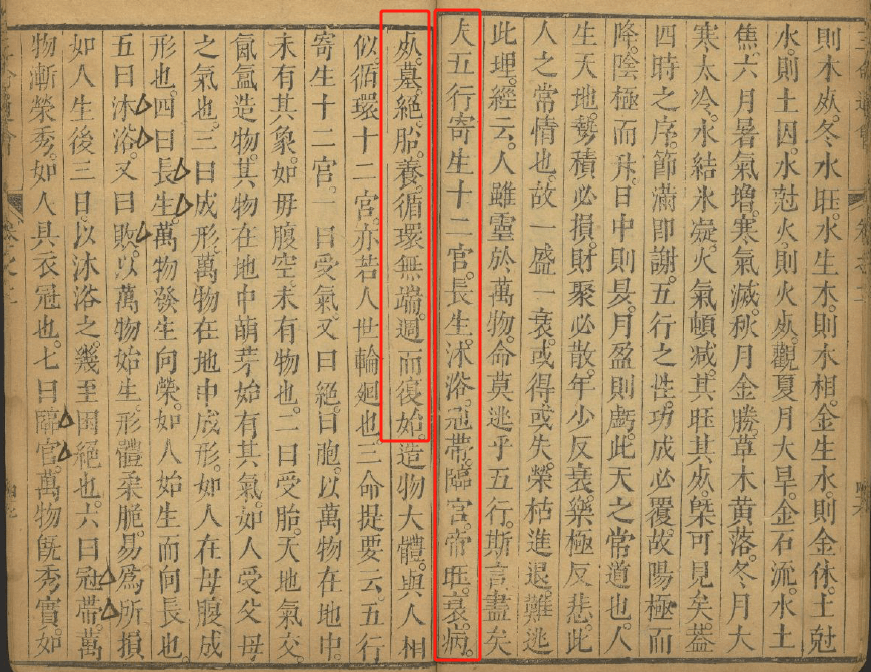 則木死冬水旺水生木則木相金生水則金休土尅
水則土囚水尅火則火死觀夏月大旱金石流水土
焦六月暑氣增寒氣滅秋月金勝草木黃落冬月大
寒太冷水結氷凝火氣頓減其旺其死槩可見矣葢
四時之序節滿卽謝五行之性功成必覆故陽極而
降陰極而升日中則昃月盈則虧此天之常道也人
生天地勢積必損財聚必散年少反衰樂極反悲此
人之常情也故一盛一衰或得或失榮枯進退難逃
此理經云人雖靈於萬物命莫逃乎五行斯言盡矣
大五行寄生十二宮長生沐浴冠帶臨官帝旺衰病
死墓絕胎養循環無端週而復始造物大體與人相
似循環十二宮亦若人世輪廻也三命提要云五行
寄生十二宮一曰受氣又曰絕曰胞以萬物在地中
未有其象如母腹空未有物也二曰受胎天地氣交
氤氳造物其物在地中萌芽始有其氣如人受父母
之氣也三曰成形萬物在地中成形如人在母腹成
形也四曰長生萬物發生向榮如人始生而向長也
五曰沐浴又曰敗以萬物始生形體柔脆易爲所損
如人生後三日以沐浴之幾至困絕也六曰冠帶萬
物漸榮秀如人具衣冠也七曰臨官萬物旣秀實如